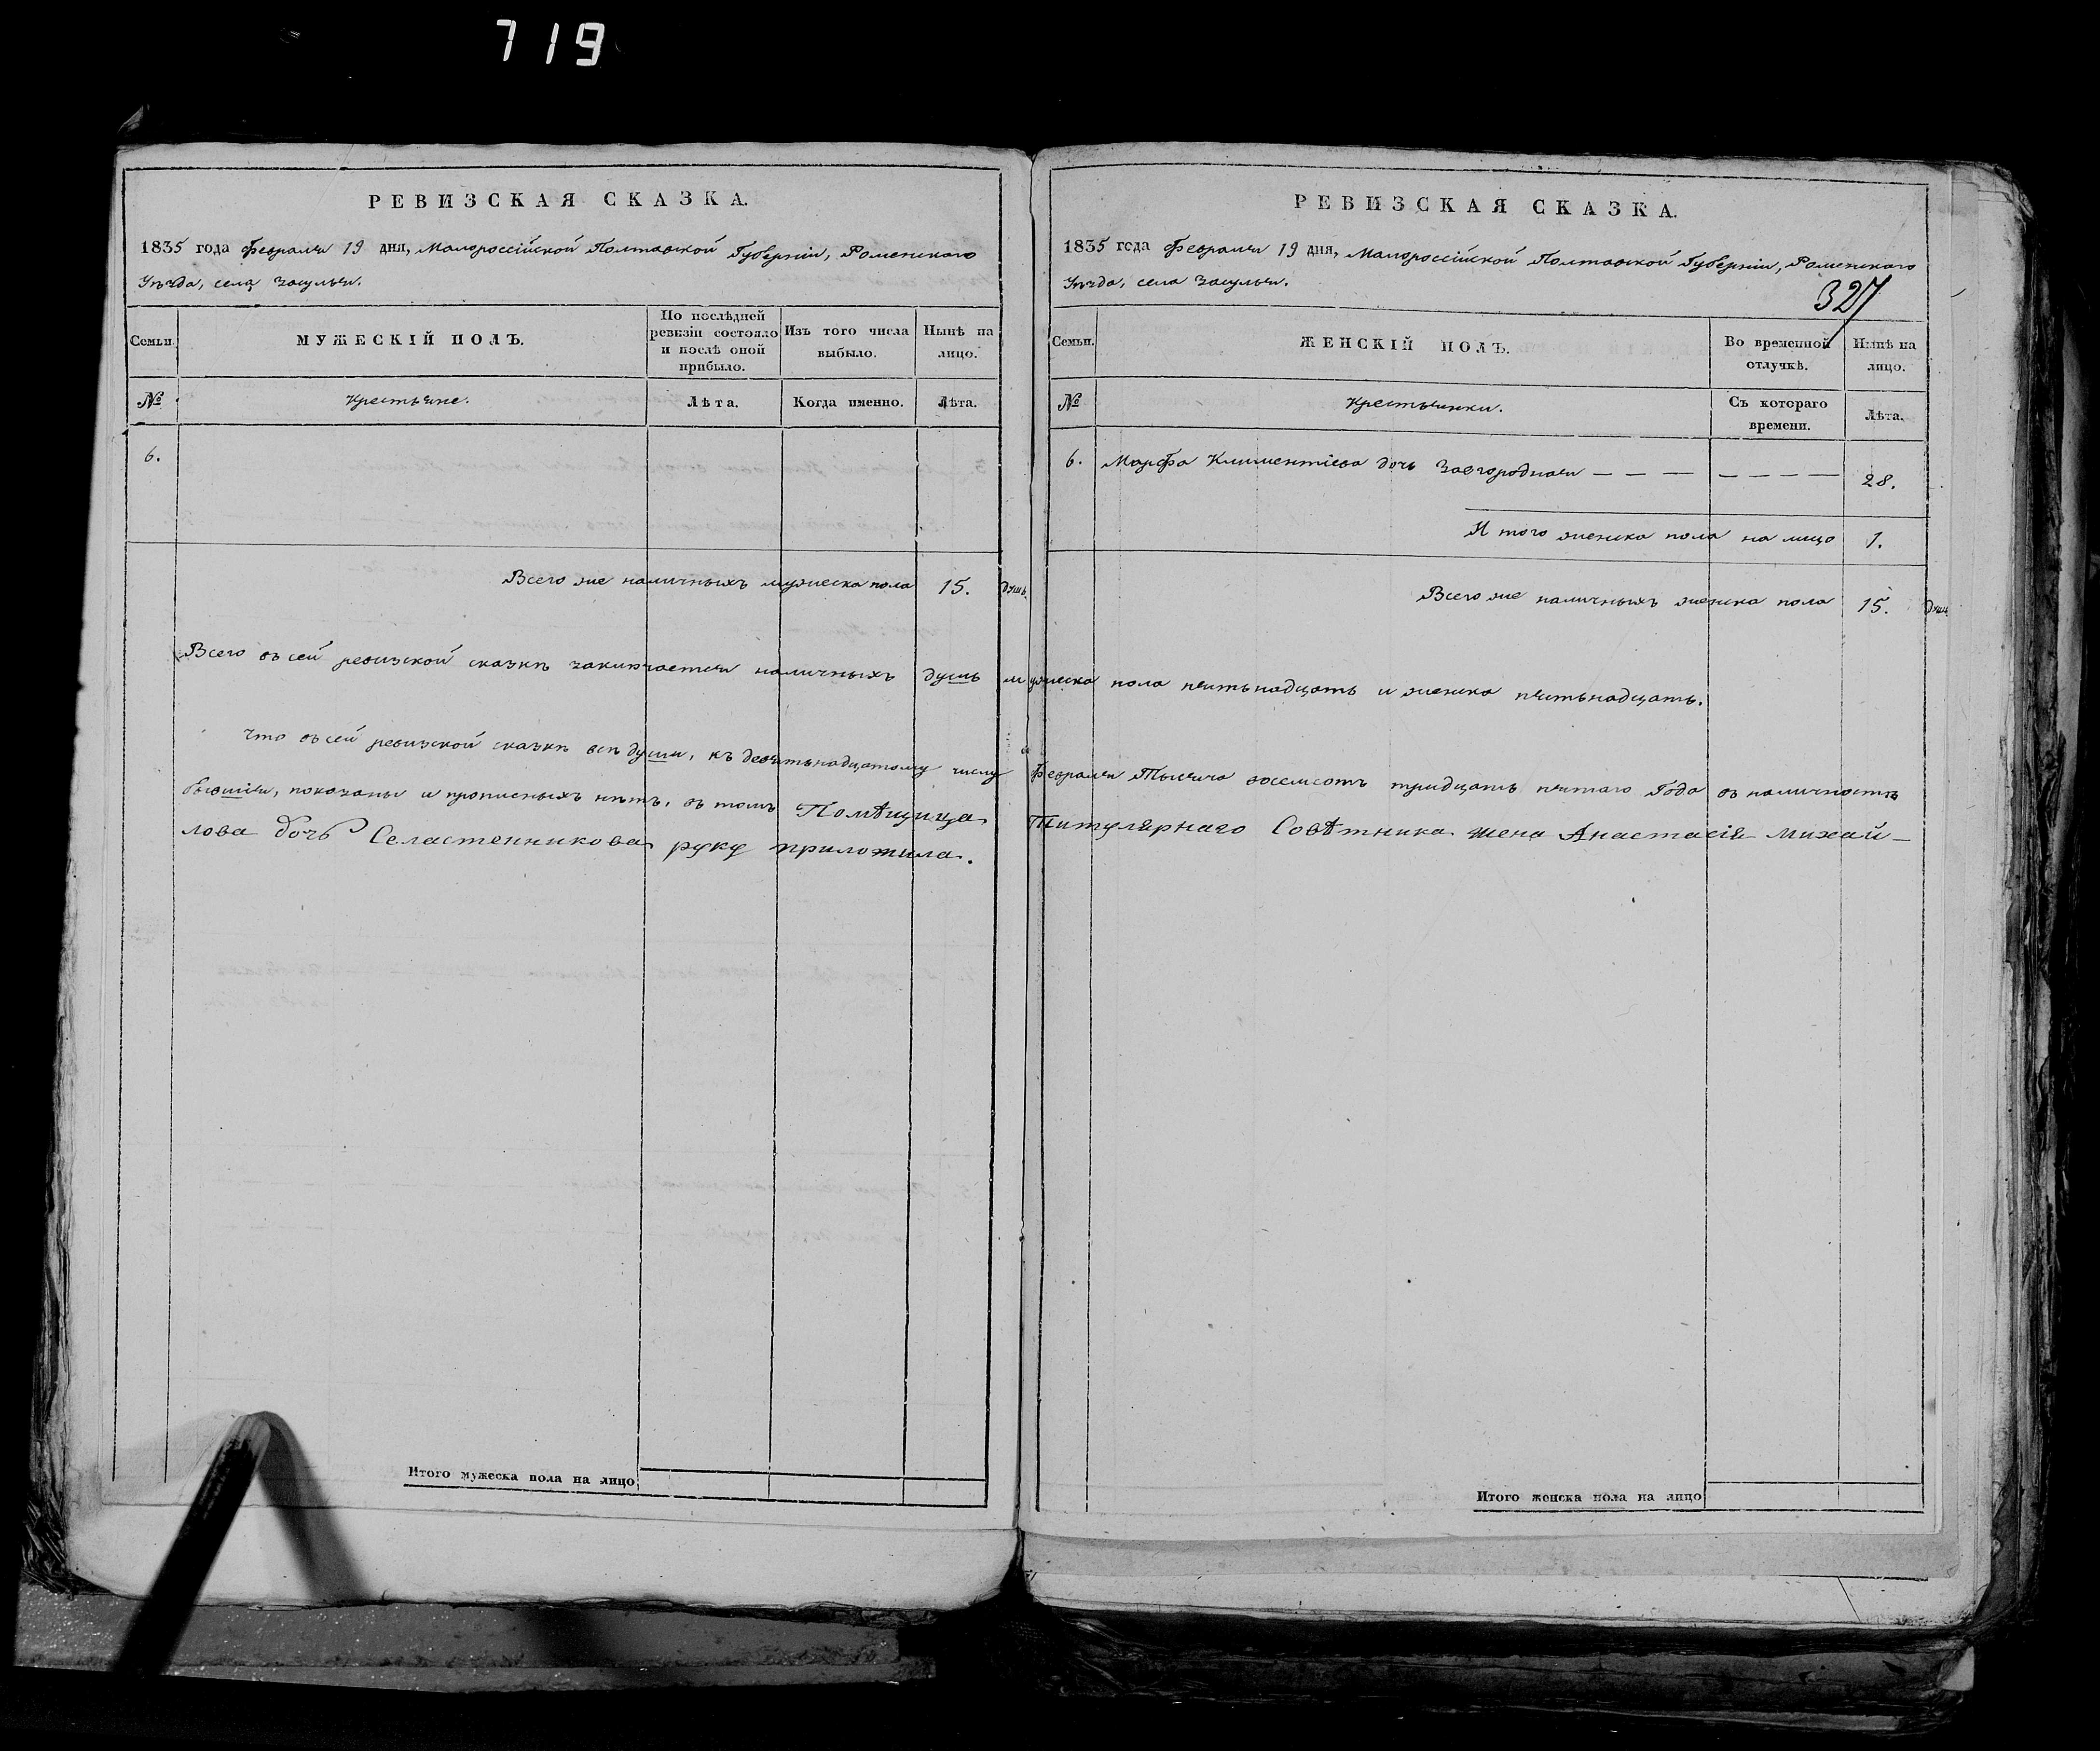 719
РЕВИЗСКАЯ СКАЗКА.
1835 года Февраля 19 дня, Малороссійской Полтавской Губерніи, Роменского
Уѣзда, села Засулья.
Семьи.
МУЖЕСКІЙ ПОЛЪ.
По послѣдней ревизіи состояло и послѣ оной прибыло.
Изъ того числа выбыло.
Нынѣ на лицо.
№
Крестьяне.
Лѣта.
Когда именно.
Лѣта.
6.
Всего же наличныхъ мужеска пола 15. душъ.
РЕВИЗСКАЯ СКАЗКА.
1835 года Февраля 19 дня, Малороссійской Полтавской Губерніи, Роменского
Уѣзда, села Засулья.
327
Семьи.
ЖЕНСКІЙ ПОЛЪ.
Во временной отлучкѣ.
Нынѣ на лицо.
№
Крестьянки.
Съ котораго времени.
Лѣта.
6. Марфа Климентіева дочь Завгородная — — — — — — — 28.
И того женска пола на лицо 1.
Всего же наличныхъ женска пола 15. душъ
Всего въ сей ревизской сказкѣ заключается наличныхъ душъ мужеска пола пятьнадцать и женска пятьнадцать.
Что въ сей ревизской сказкѣ всѣ души, къ девятьнадцатому числу Февраля Тысяча восемсотъ тридцать пятаго Года въ наличности
бывшія, показаны и прописныхъ нѣтъ, въ томъ Помѣщица Титулярнаго Совѣтника жена Анастасія Михай-
лова дочь Селастенникова руку приложила.
Итого мужеска пола на лицо
Итого женска пола на лицо